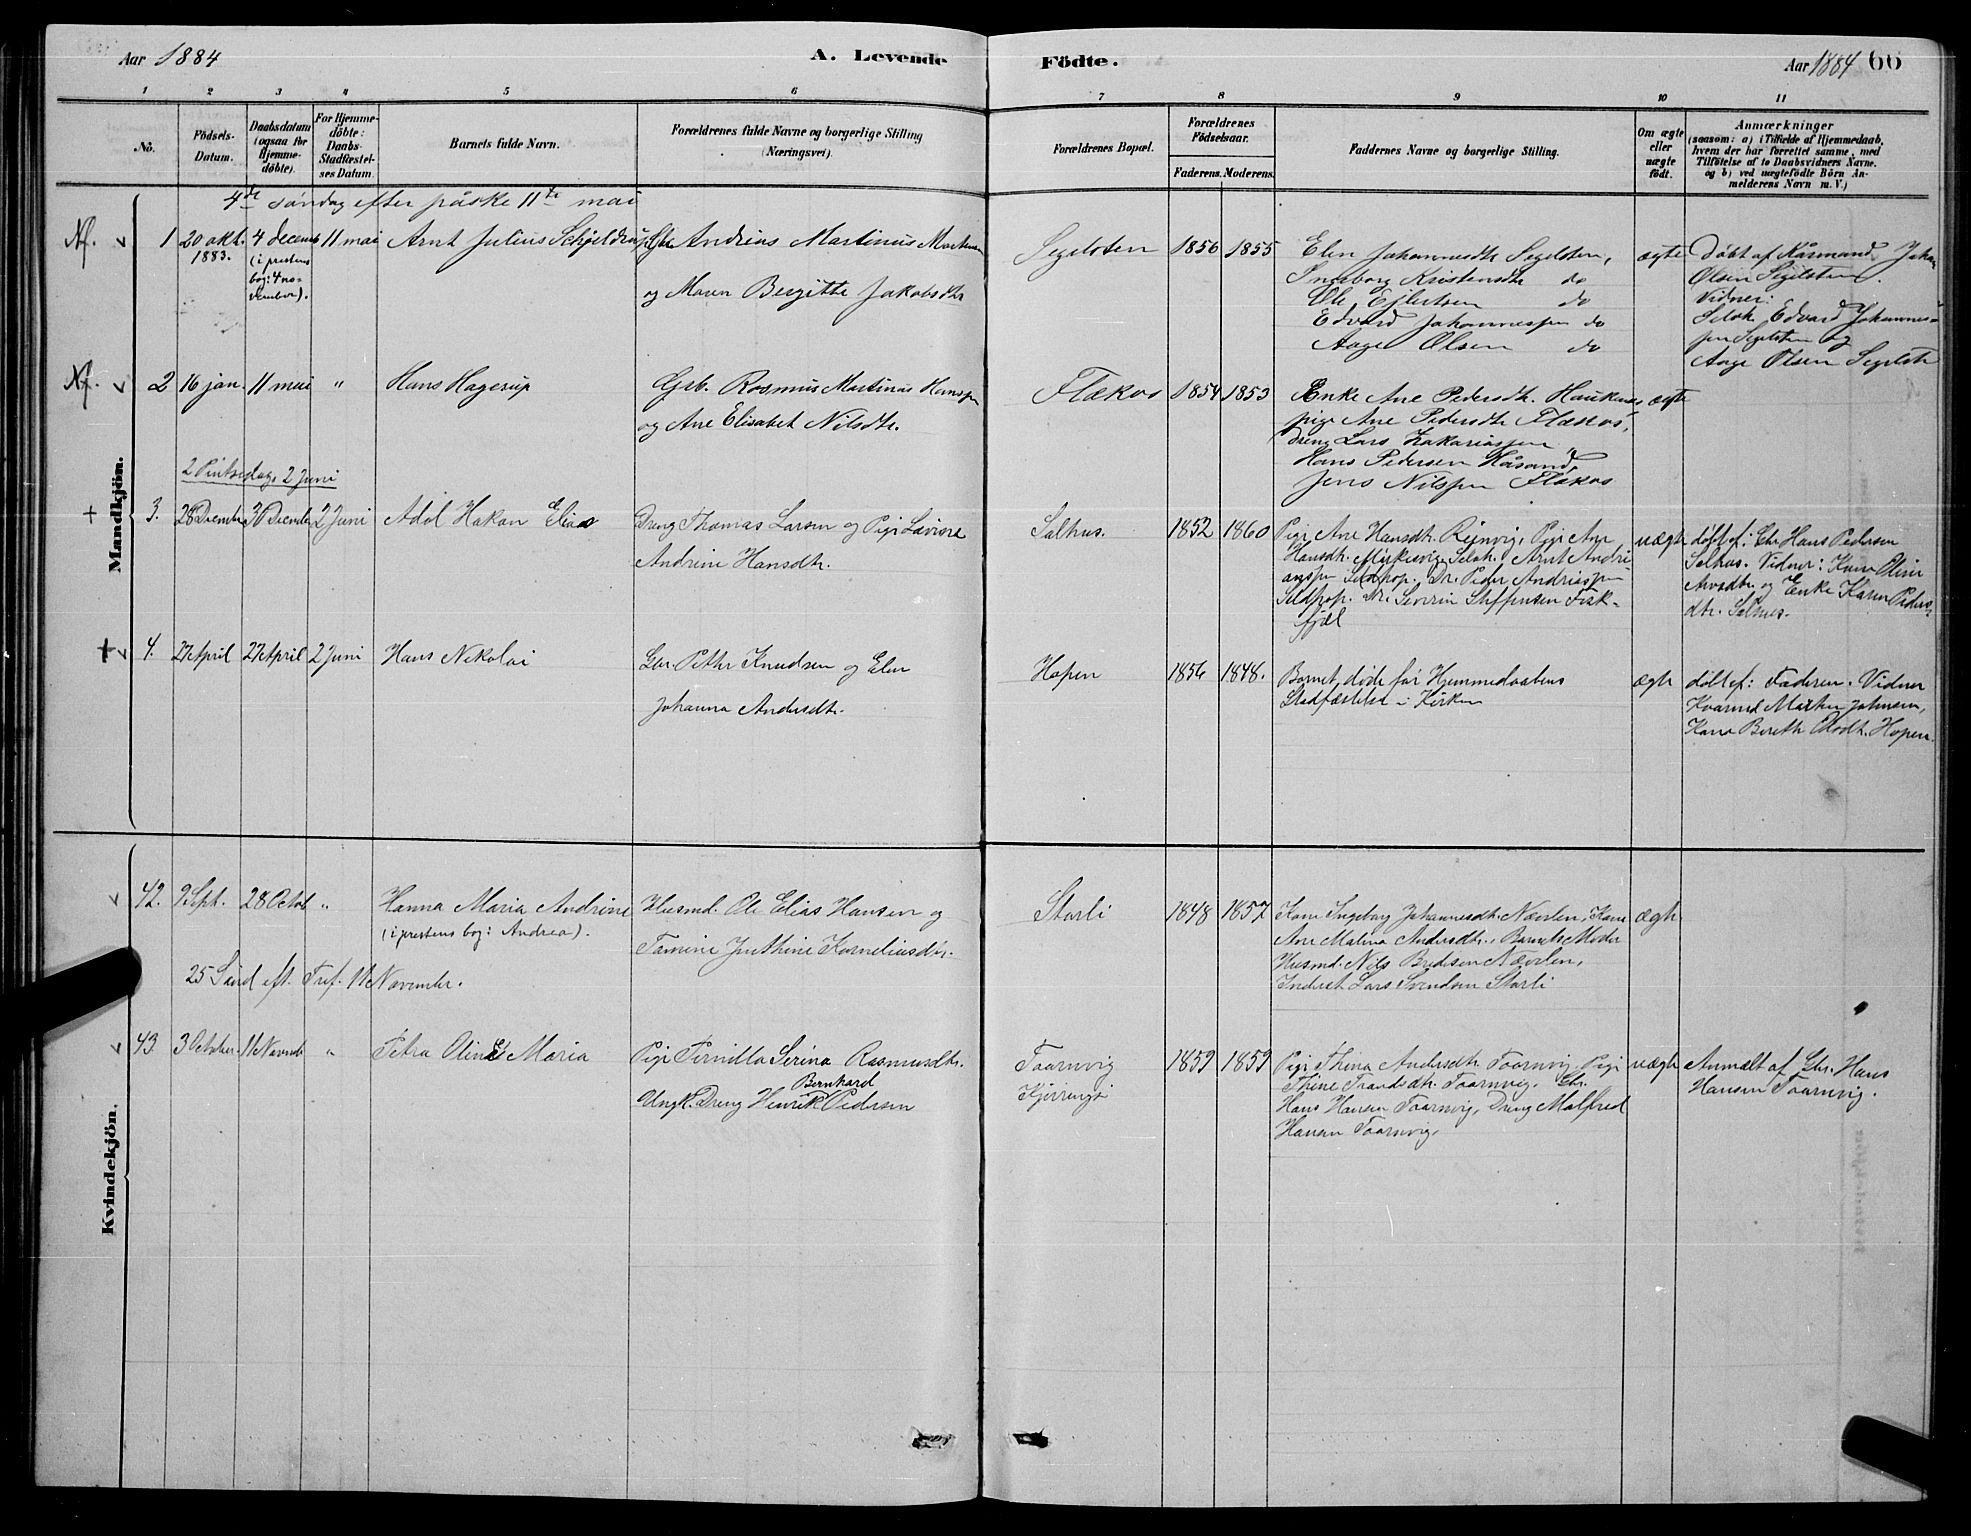 Aar 1884
A. Levende
Födte.
Aar 1884 66
1 2 3 4 5 6 7 8 9 10 11
No.
Födsels-
Datum.
Daabsdatum
(ogsaa for
Hjemme-
döbte).
For Hjemme-
döbte:
Daabs-
Stadfæstel-
ses Datum.
Barnets fulde Navn.
Forældrenes fulde Navne og borgerlige Stilling
(Næringsvei).
Forældrenes Bopæl.
Forældrenes
Födselsaar.
Faderens. Moderens.
Faddernes Navne og borgerlige Stilling.
Om ægte
eller
uægte
födt.
Anmærkninger
(saasom: a) i Tilfælde af Hjemmedaab,
hvem der har forrettet samme, med
Tilföielse af to Daabsvidners Navne.
og b) ved uægtefödte Börn An-
melderens Navn m. V.)
Mandkjön.
4de søndag efter påske 11te mai
Nf. 1 20 okt.
1883.
4 decemb
(i prestens
bog: 4 no-
vember).
11 mai
Arnt Julius Schjeldrup
Gbr Andreas Martinus Mortensen
og Maren Bergitte Jakobsdtr
Segelsten
1856 1855
Elen Johannesdtr Segelsten,
Ingeborg Kristensdtr do
Ole Ejlertsen do
Edvard Johannessen do
Aage Olsen do
ægte
Døbt af Kårmand Johan
Olsen Segelsten.
Vidner:
Selvh. Edvard Johannes-
sen Segelsten og
Aage Olsen Segelste
Nf. 2 16 jan. 11 mai "
Hans Hagerup
Gsb. Rasmus Martinus Hanssen
og Ane Elisabet Nilsdtr.
Flækos
1854 1853
Enke Ane Pedersdtr. Haukenes
pige Ane Pedersdtr Flækos,
dreng Lars Zakariassen
Hans Pedersen Håsand,
Jens Nilssen Flækos
ægte
2 Pintsedag, 2 Juni
+ 3. 28 Decembr 30 Decembr 2 Juni
Adol Hakon Elias
Dreng Thomas Larsen og Pige Lavisia
Andrine Hansdtr.
Salhus.
1852 1860
Pige Ane Hansdtr. Reinvig, Pige Ane
Hansdtr. Mirkevig, Selvh. Arnt Andri-
anssen Seldpop. Dr. Peder Andriassen
Seldpop. Dr. Severin Steffensen Fisk-
fjæl
uægte
døbt af: Gbr Hans Pedersen
Salhus. Vidner: Kone Oline
Arnsdtr. og Enke Karen Peders-
dtr. Salhus.
+ 4. 27 April 27 April 2 Juni
Hans Nikolai
Gbr. Petter Knudsen og Elen
Johanna Andersdtr.
Hopen
1856 1848.
Barnet døde før Hjemmedaabens
Stadfæstelse i Kirken
ægte
døbt af: Faderen. Vidner
Kaarmd Morten Johnsen,
Kone Bereth Olsdtr. Hopen.
Kvindekjön.
42. 9 Sept. 28 Octob "
Hanna Maria Andrine
(i prestens bog: Andrea).
Husmd. Ole Elias Hansen og
Tomine Justhine Korneliusdtr.
Storli
1848 1857
Kone Ingeborg Johannesdtr. Nævlen, Kone
Ane Malina Andersdtr., Barnets Moder
Husmd. Nils Bredesen Nævlen,
Inderst Lars Svendsen Storli
ægte
25 Sønd eft. Tref. 11 November.
43. 3 October. 11 Novemb "
Petra Oline Maria
Pige Pernilla Serina Rasmusdtr.
Bernhard
Ungk. Dreng Henrik Pedersen
Taarnvig
Kjerringø
1859 1859
Pige Thina Andersdtr. Taarnvig Pige
Thine Trondsdtr. Taarnvig. Gbr.
Hans Hansen Taarnvig, Dreng Malfred
Hansen Taarnvig.
uægte
Anmeldt af Gbr. Hans
Hansen Taarnvig.